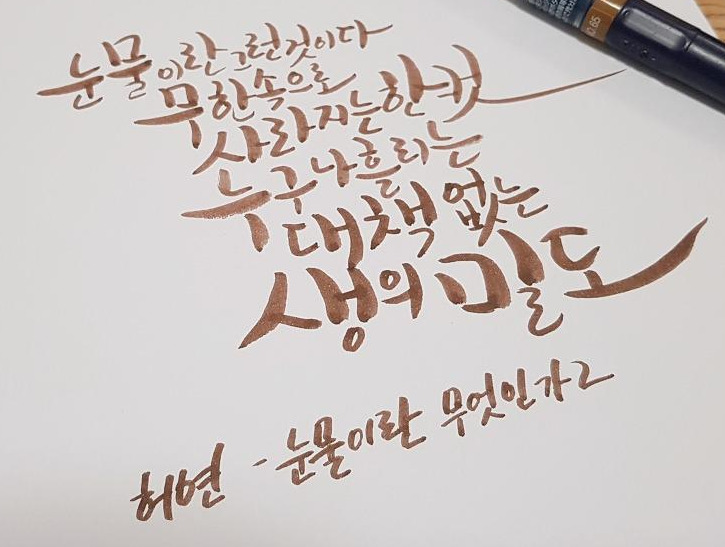 눈물이란 그런 것이다
무한 속으로
사라지는 한 번
누구나 흘리는
대책 없는
생의 밀도
허연 - 눈물이란 무엇인가 2
0.65